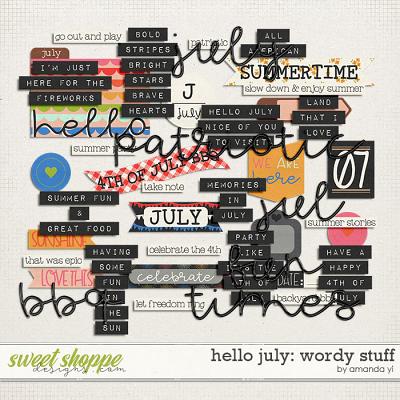 go out and play
BOLD
STRIPES
BRIGHT
STARS
BRAVE
HEARTS
july
patriotic
ALL
AMERICAN
SUMMERTIME
slow down & enjoy summer
july
I'M JUST
HERE FOR THE
FIREWORKS
J
july
hello
HELLO JULY
NICE OF YOU
TO VISIT
LAND
THAT I
LOVE
patriotic
summer
4TH OF JULY BBQ
take note
WE ARE
here
07
SUMMER FUN
&
GREAT FOOD
MEMORIES
IN
JULY
JULY
jul
summer stories
SUNSHINE
that was epic
LOVE THIS
HAVING
SOME
FUN
IN
THE
SUN
celebrate the 4th
celebrate
let freedom ring
PARTY
LIKE
4TH OF
DATE:
fun
times
bbq
HAVE A
HAPPY
4TH OF
JULY
backyard
sweet shoppe
designs.com
hello july: wordy stuff
by amanda yi